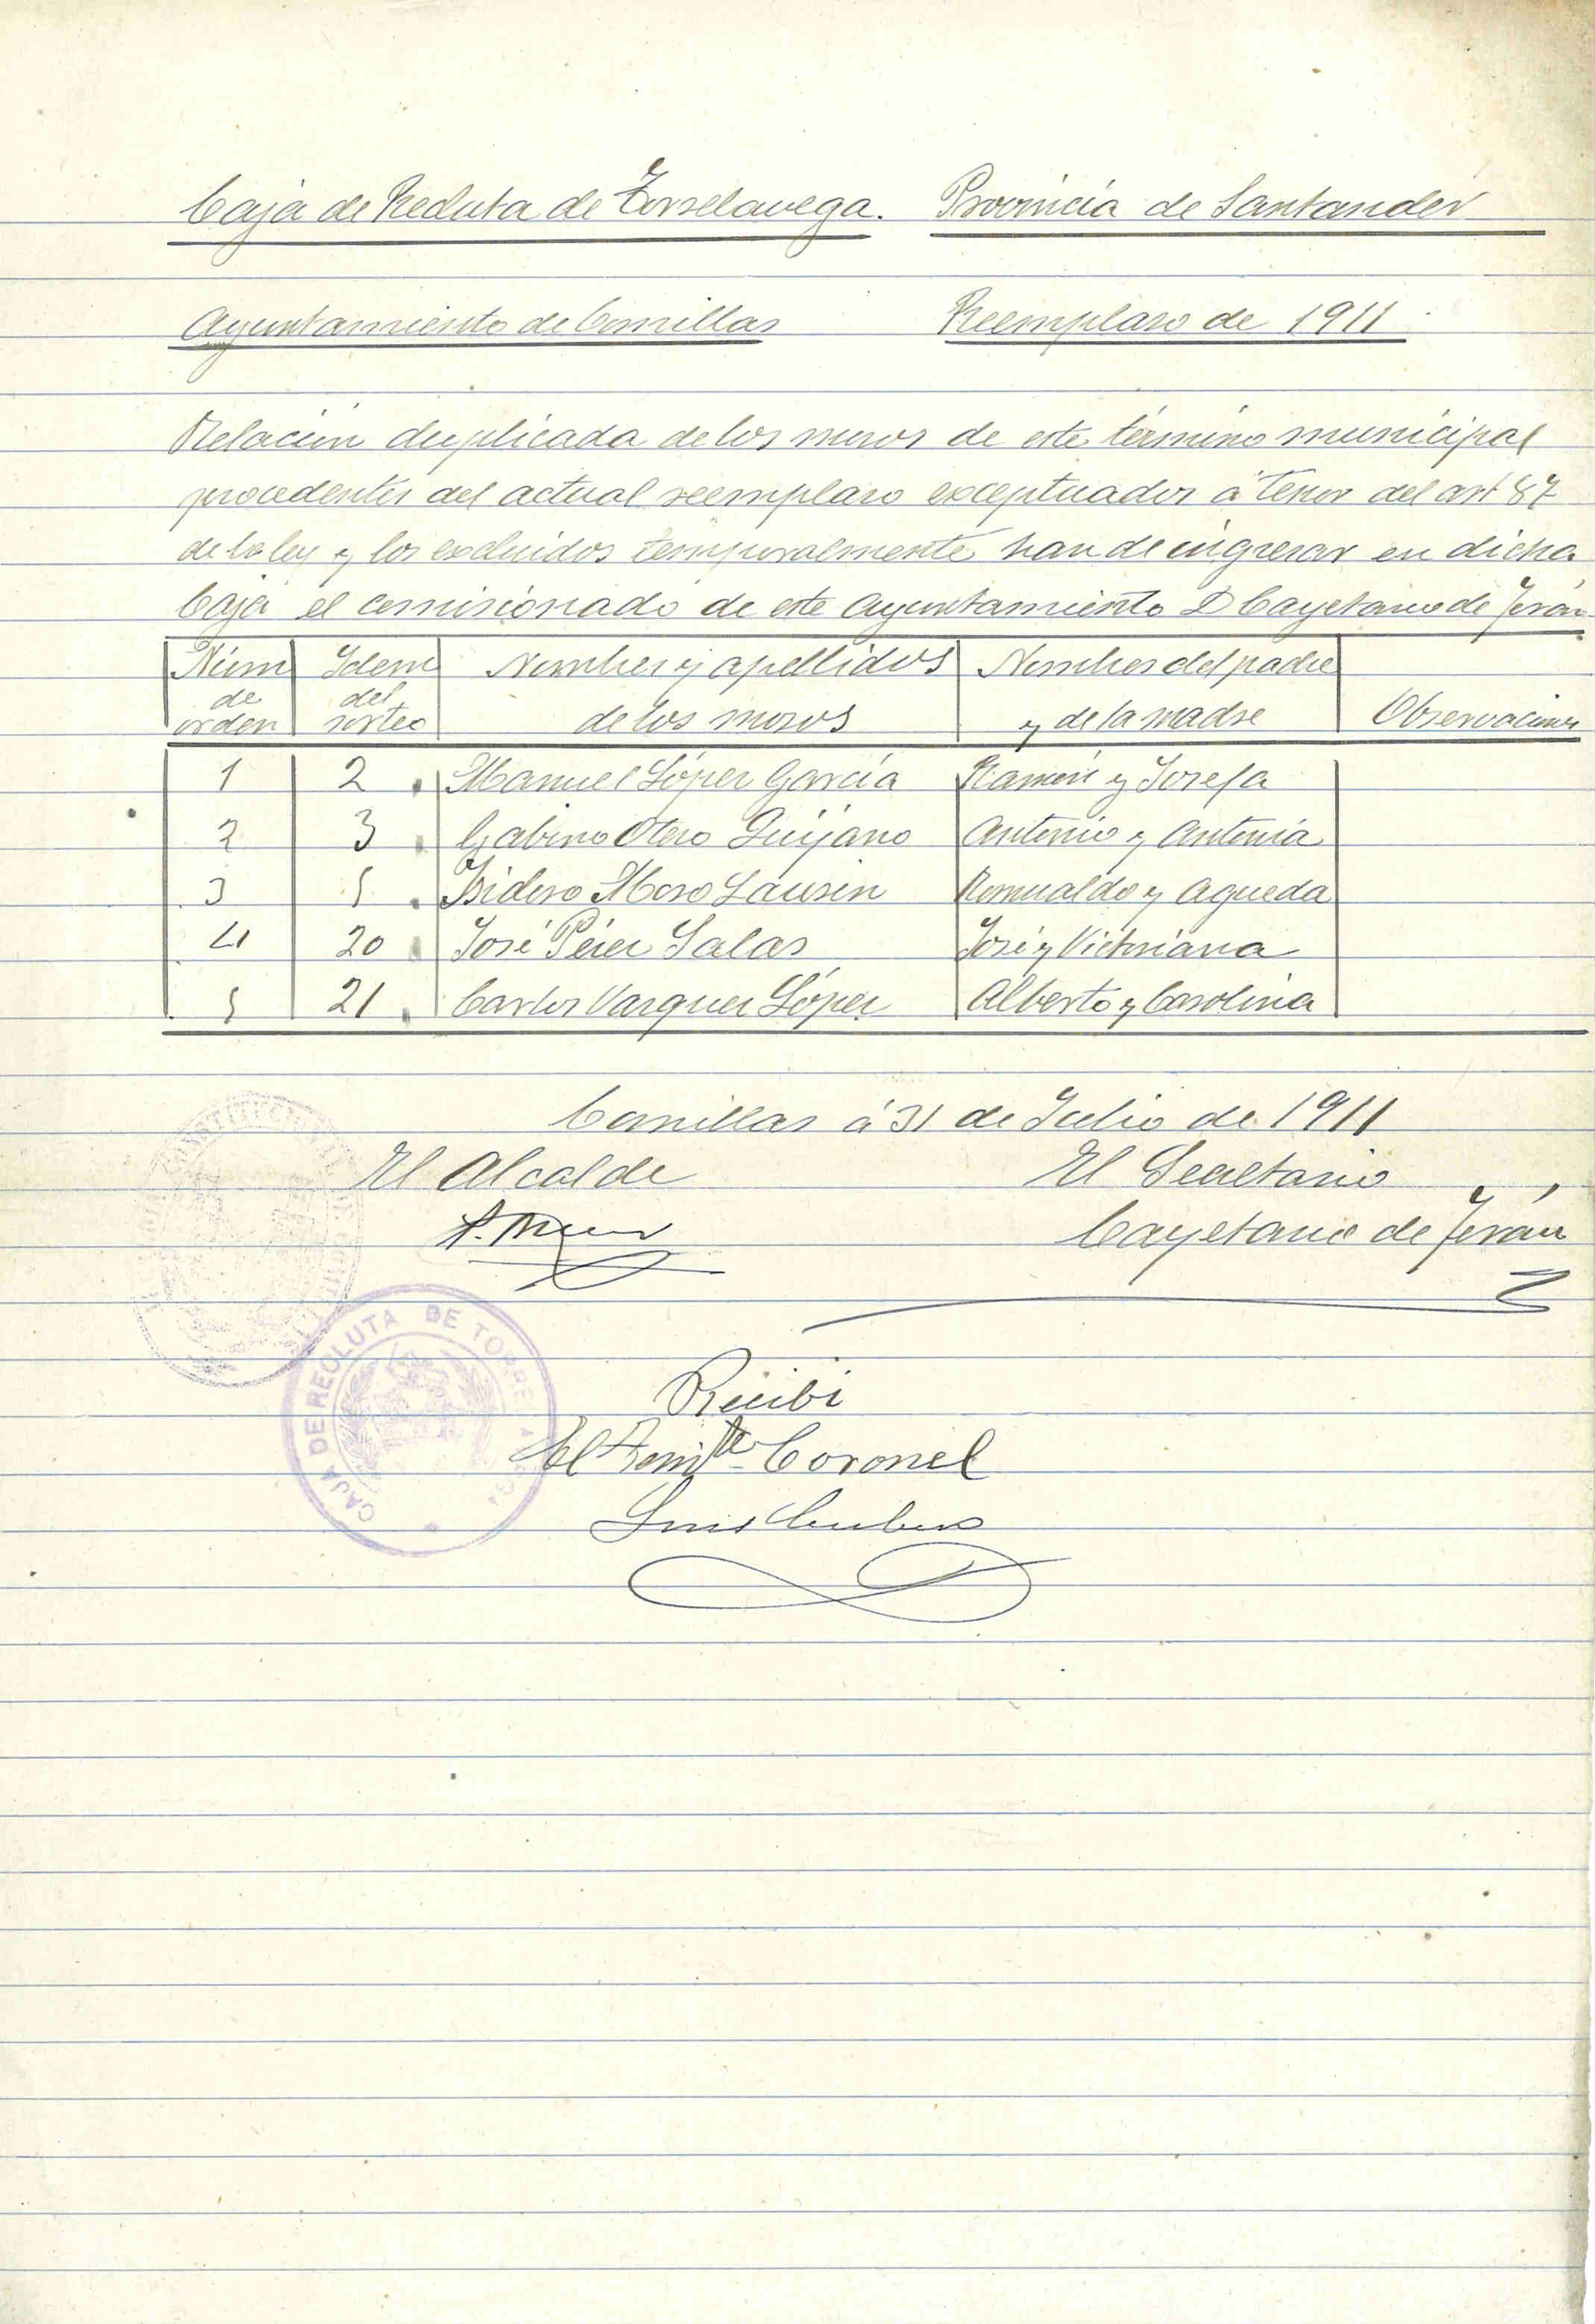 Caja de Recluta de Torrelavega. Provincia de Santander
Ayuntamiento de Comillas Reemplazo de 1911
Relación duplicada de los mozos de este término municipal
procedentes del actual reemplazo exceptuados á tenor del art 87
de la ley y los excluidos temporalmente han de ingresar en dicha
Caja el comisionado de este Ayuntamiento D Cayetano de Terán
Núm de orden Idem del sorteo Nombres y apellidos de los mozos Nombres del padre y de la madre Observaciones
1 2 Manuel López García Ramón y Josefa
2 3 Gabino Otero Quijano Antonio y Antonia
3 5 Isidoro Moro Romualdo y Agueda
4 20 José Pérez Salas José y Victoriana
5 21 Carlos Vazquez López Alberto y Carolina
Comillas á 31 de Julio de 1911
El Alcalde El Secretario
Cayetano de Terán
CAJA DE RECLUTA DE TORRELAVEGA
Recibí
El Tenite Coronel
Luis Cubero